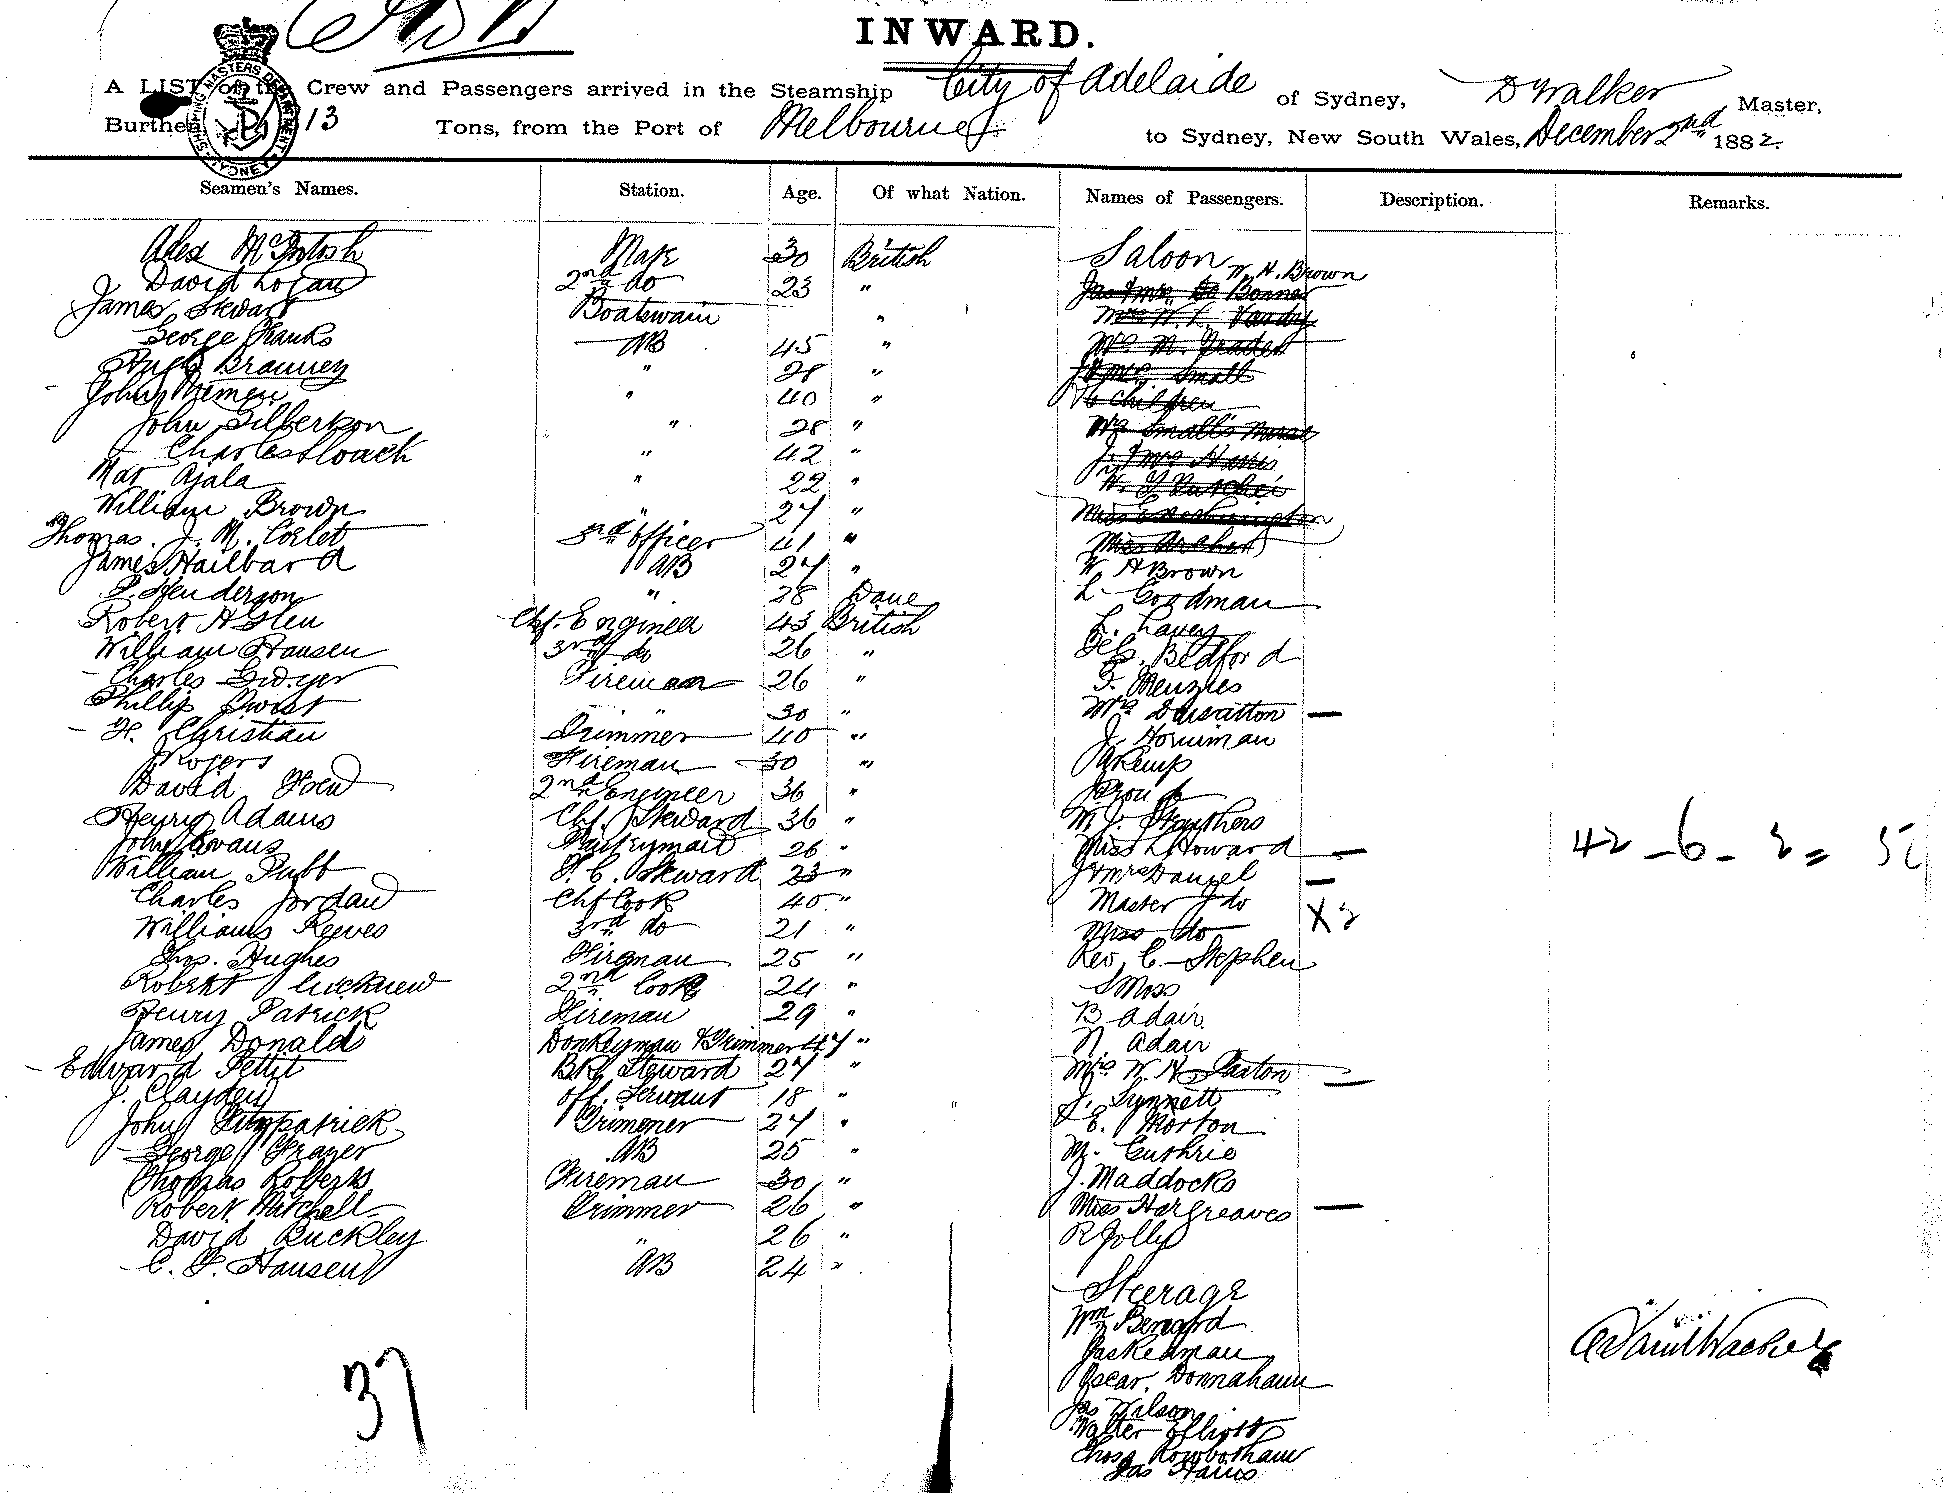 INWARD.
A LIST of the Crew and Passengers arrived in the Steamship City of Adelaide of Sydney, D Walker Master,
Burthen 13 Tons, from the Port of Melbourne to Sydney, New South Wales, December 2nd 1882
SHIPPING MASTERS DEPARTMENT SYDNEY
Seamen's Names. Station. Age. Of what Nation. Names of Passengers. Description. Remarks.
Alex McIntosh Mate 30 British Saloon
David Logan 2nd do 23 " W. H. Brown
James Stewart Boatswain "
George Franks AB 45 "
Hugh Branney " 28 "
John " 40 " 6 children
John Gilbertson " 28 " Mrs Small's Nurse
Charles Loach " 42 "
Mat Ajala " 22 "
William Brown " 27 "
Thomas J. M. Corlet 3rd officer 41 " Miss Archer
James Hailbard AB 27 " W H Brown
P. Henderson " 28 Dane L Goodman
Robert H Glen Chf. Engineer 43 British L. Lavey
William Hansen 3rd do 26 " Bedford
Charles Gwyer Fireman 26 " F. Menzies
Phillip " 30 " Mrs
H. Christian Trimmer 40 " J. Horniman
J Rogers Fireman 30 " Kemp
David 2nd Engineer 36 "
Henry Adams Chf. Steward 36 " W J. Struthers
John Evans Pantryman 26 " Miss L Howard
William Tubb F. C. Steward 23 " J & Mrs Daniel
42 - 6 - 2 =
Charles Jordan Chf Cook 40 " Master J do
William Reeves 3rd do 21 " Miss do X 2
Thos. Hughes Fireman 25 " Rev. C. Stephen
Robert 2nd Cook 24 " S Moss
Henry Patrick Fireman 29 " B Adair
James Donald Donkeyman & Trimmer 47 " N. Adair
Edward Pettit BK Steward 27 " Mrs W. H. Paxton
J. Clayden Off. Servant 18 " J. Synnett
John Fitzpatrick Trimmer 27 " E. Morton
George Frazer AB 25 " M. Guthrie
Thomas Roberts Fireman 30 " J. Maddocks
Robert Hatchell Trimmer 26 " Miss Hargreaves
David Buckley " 26 " R Jolly
C. F. Hansen AB 24 "
Steerage
Wm Benard
Jas Redman
Oscar Donnahann
Jas Wilson
Walter Elliott
Thos Rowbotham
Jas Harris
37